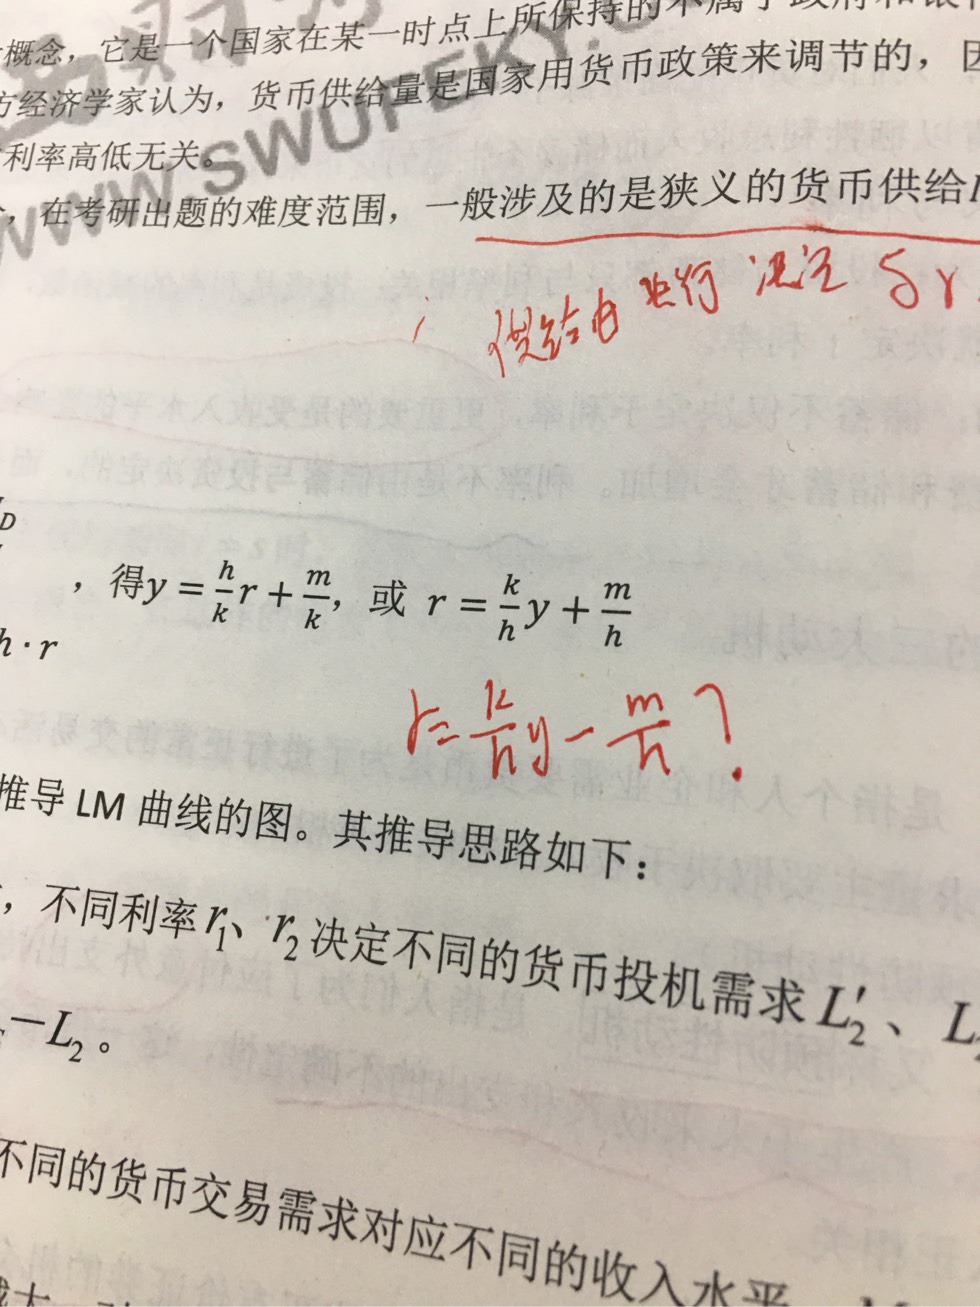 概念，它是一个国家在某一时点上所保持的不属于政府和银
方经济学家认为，货币供给量是国家用货币政策来调节的，因
利率高低无关。
WWW.SWUFEKY.
，在考研出题的难度范围，一般涉及的是狭义的货币供给
供给由央行决定
D
，得y = h/k r + m/k，或 r = k/h y + m/h
h · r
r = k/h y − m/h ？
推导 LM 曲线的图。其推导思路如下：
，不同利率 r₁、r₂ 决定不同的货币投机需求 L₂′、L
−L₂。
不同的货币交易需求对应不同的收入水平